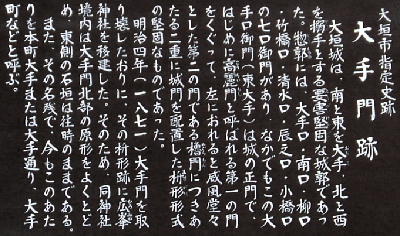 大垣市指定史跡
大手門跡
大垣城は、南と東を大手、北と西
を搦手とする要害堅固な城郭であっ
た。惣郭には、大手口・南口・柳口
・竹橋口・清水口・辰之口・小橋口
の七口御門があり、なかでもこの大
手口御門(東大手)は城の正門で、
はじめに高麗門と呼ばれる第一の門
をくぐり、左におれると威風堂々
とした第二の門である櫓門につきあ
たる二重に城門を配置した枡形形式
の堅固なものであった。
明治四年(一八七一)大手門を取
り壊したおりに、その枡形跡に広峯
神社を移建した。そのため、同神社
境内は大手門北部の原形をよくとど
め、東側の石垣は往時のままである。
また、その名残で、今もこのあた
りを本町大手または大手通り、大手
町などと呼ぶ。